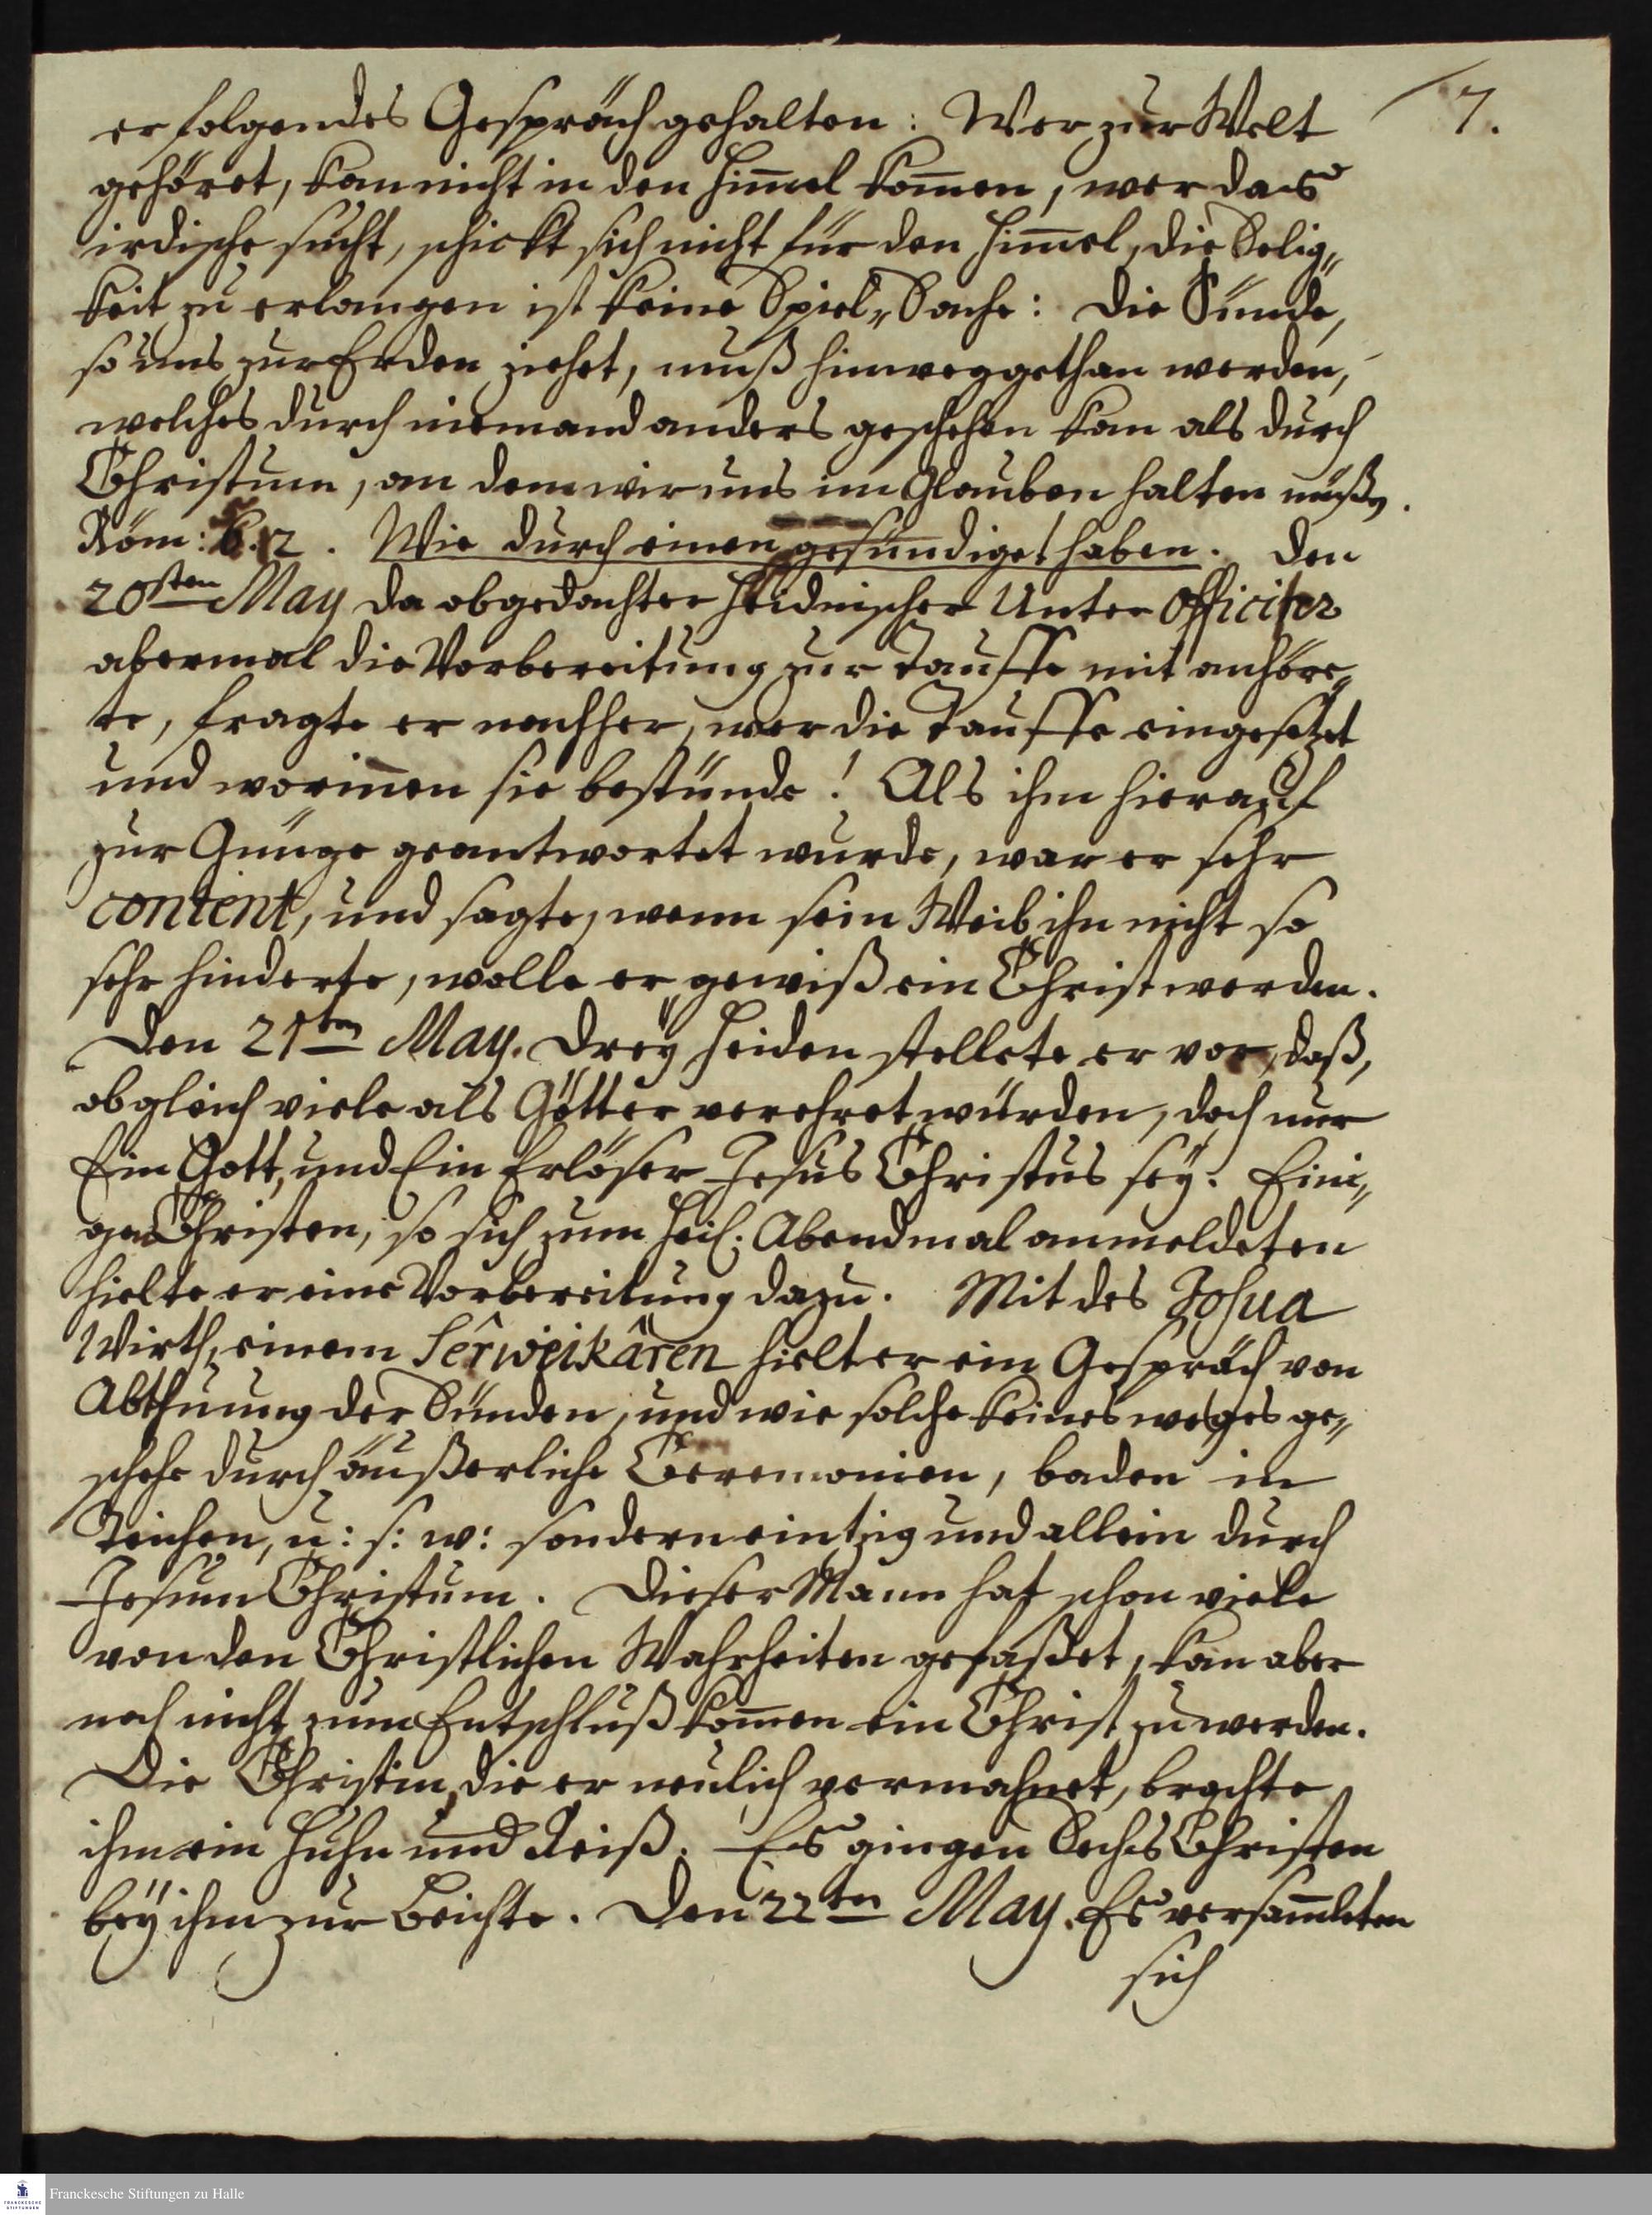 7.
er folgendes Gespräch gehalten: Wer zur Welt
gehöret, kan nicht in den Him̄el kom̄en, wer das
irdische sucht, schickt sich nicht für den Him̄el, die Selig„
keit zu erlangen ist keine Spiel„Sache: die Sünde,
so uns zur Erden ziehet, muß hinweggethan werden,
welches durch niemand anders geschehen kan als durch
Christum, an dem wir uns im Glauben halten müßen.
Röm: 12. Wie durch einen gesündiget haben. Den
20sten May da obgedachter Heidnischer Unter Officirer
abermal die Vorbereitung zur Tauffe mit anhöre„
te, fragte er nachher, wer die Tauffe eingesetzet
und worin̄en sie bestünde! Als ihm hierauf
zur Gnüge geantwortet wurde, war er sehr
content, und sagte, wenn sein Weib ihn nicht so
sehr hinderte, wolle er gewiß ein Christ werden.
Den 21ten May. Drey Heiden stellete er vor, daß,
obgleich viele als Götter verehret würden, doch nur
Ein Gott, und Ein Erlöser Jesus Christus sey. Eini„
gen Christen, so sich zum Heil. Abendmal anmeldeten
hielte er eine Vorbereitung dazu. Mit des Josua
Wirth, einem Sêrweikâren hielt er ein Gespräch von
Abthuung der Sünden, und wie solche keines weges ge„
schehe durch äußerliche Ceremonien, baden in
Teichen, u: s: w: sondern eintzig und allein durch
Jesum Christum. Dieser Mann hat schon viele
von den Christlichen Wahrheiten gefaßet, kan aber
noch nicht zum Entschluß kom̄en ein Christ zu werden.
Die Christin, die er neulich vermahnet, brachte
ihm ein Huhn und Reiß. Es gingen Sechs Christen
bey ihm zur Beichte. Den 22ten May. Es versam̄leten
sich
Franckesche Stiftungen zu Halle